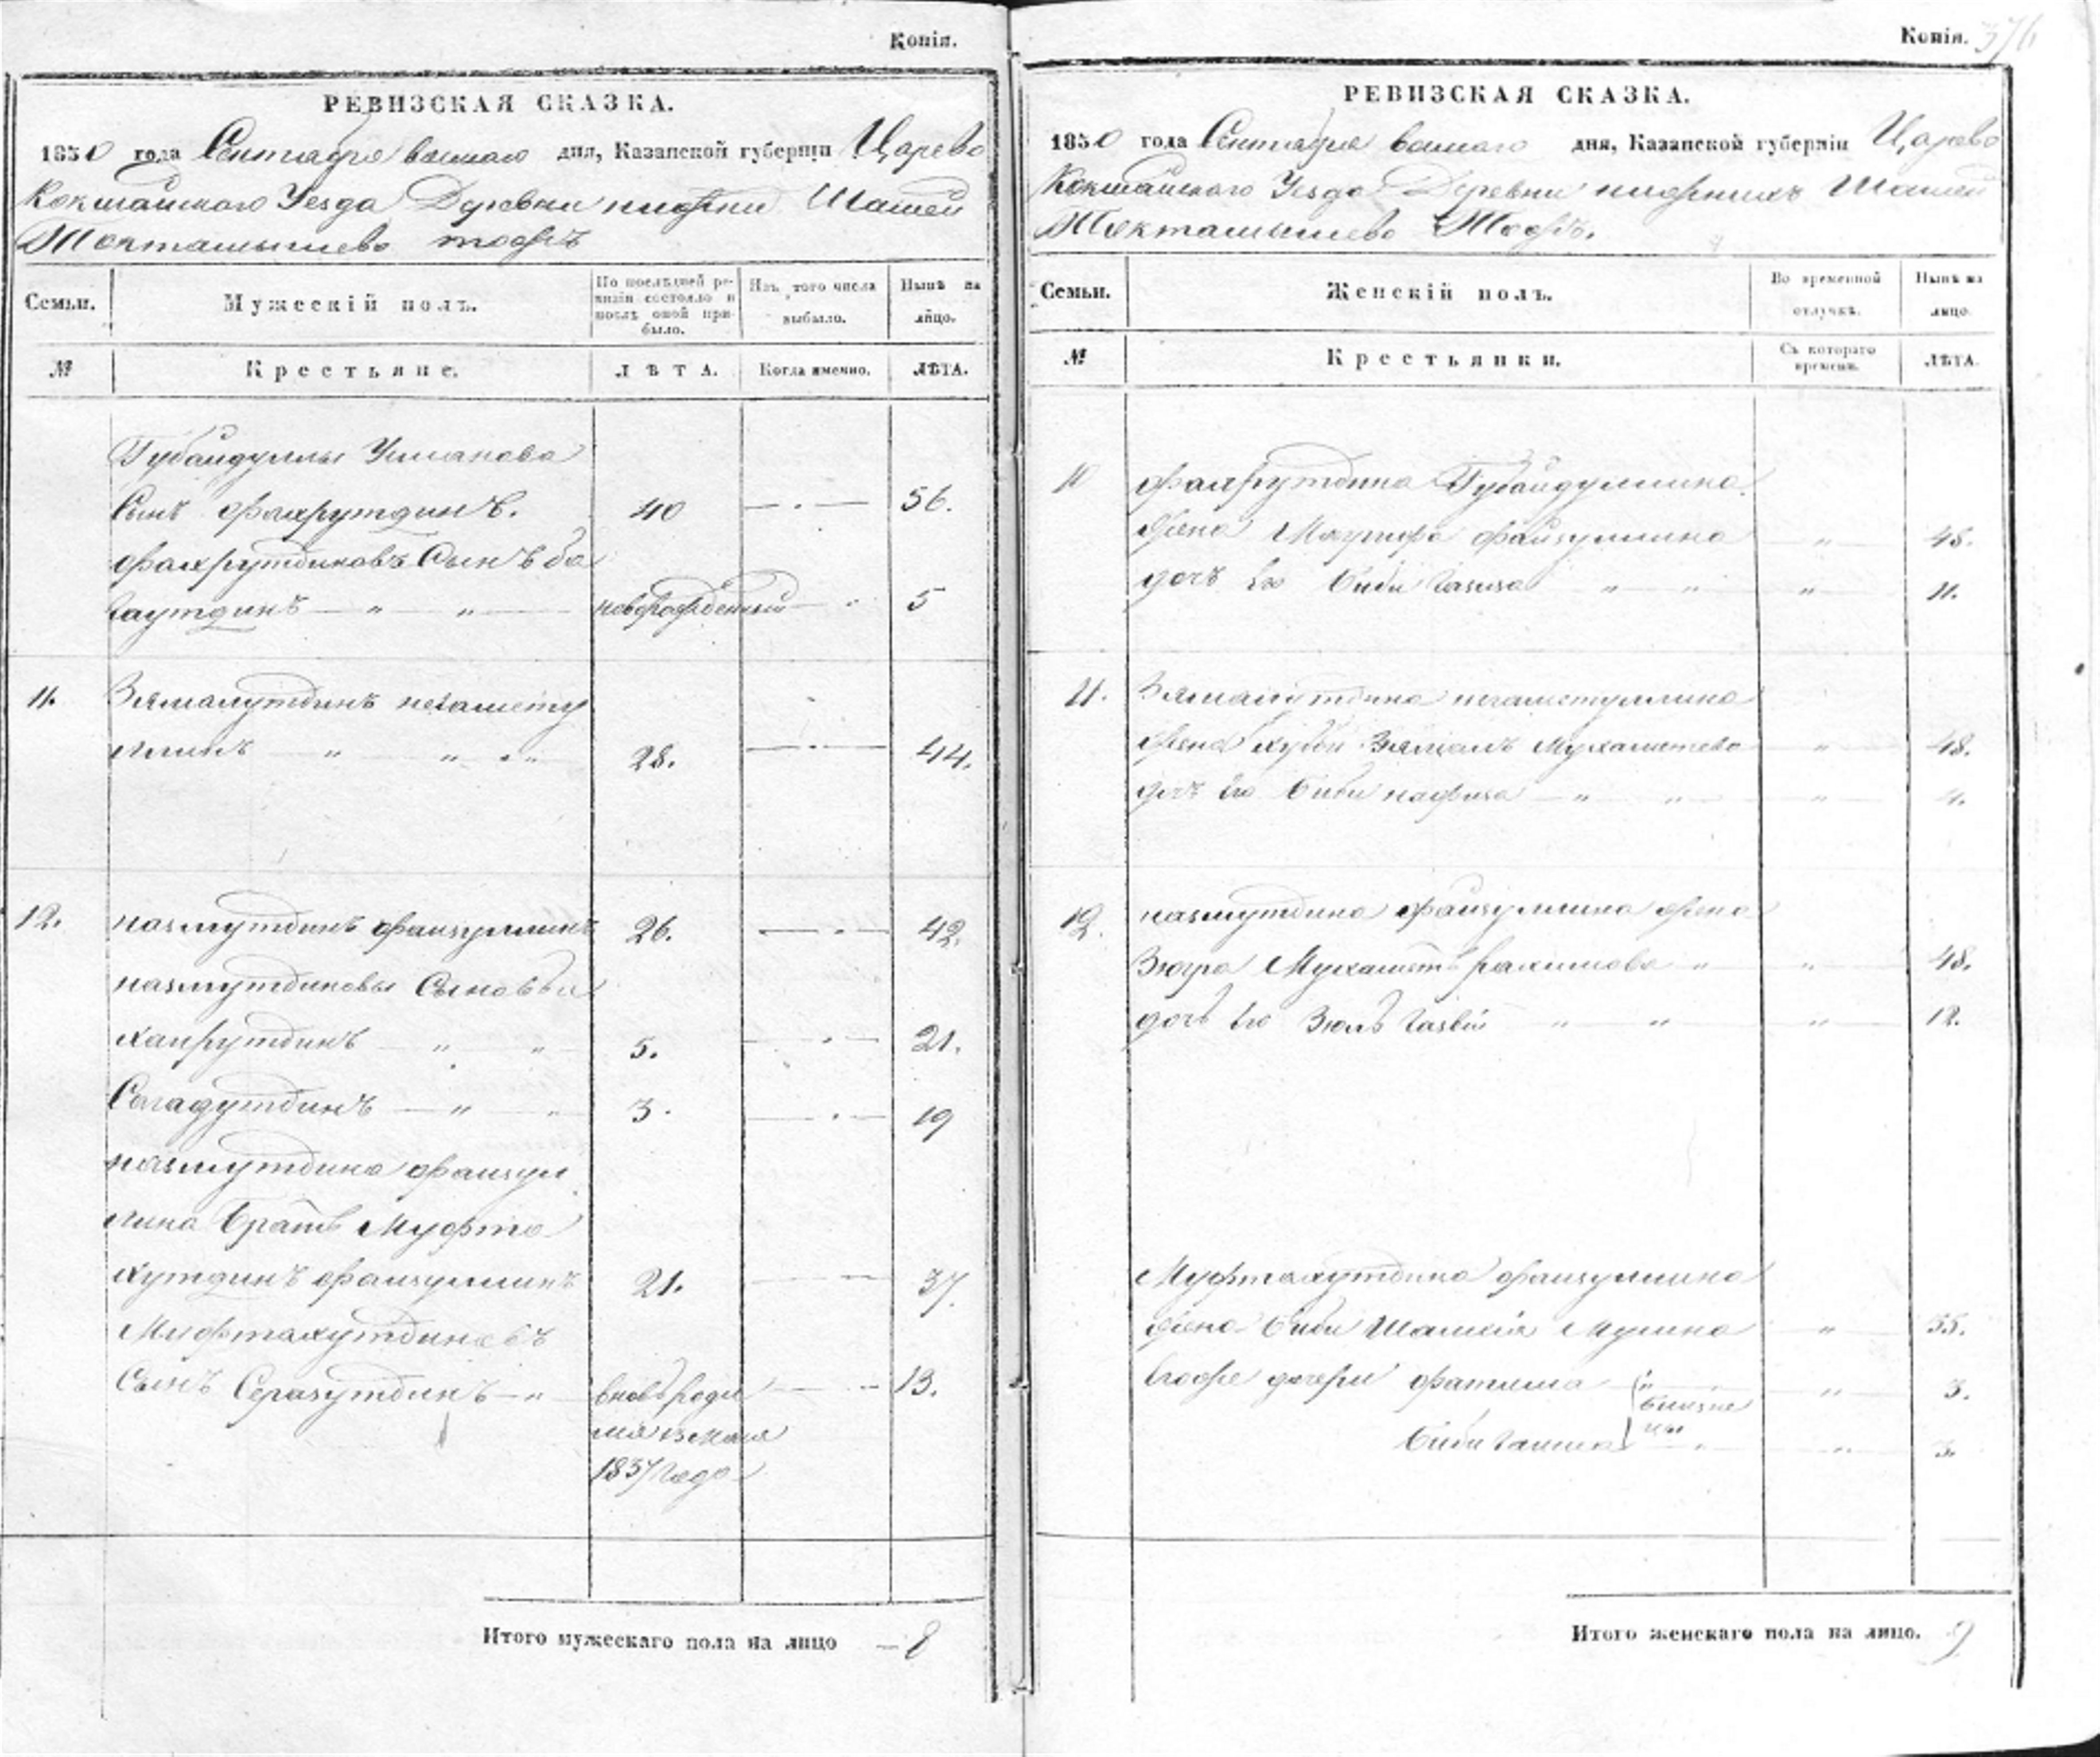 Копія.
РЕВИЗСКАЯ СКАЗКА.
1850 года Сентября дня, Казанской губерніи Царево
Кокшайскаго Уезда Деревни Шашей
тожъ
Семьи.
Мужескій полъ.
По послѣдней ре-
визіи состояло и
послѣ оной при-
было.
Изъ того числа
выбыло.
Нынѣ на
лицо.
№
Крестьяне.
ЛѢТА.
Когда именно.
ЛѢТА.
Губайдуллы Усманова
Сынъ Фахрутдинъ. 40 — . — 56.
Фахрутдиновъ Сынъ Ба
гаутдинъ — " " — новорожденный — . 5
11. Зямалутдинъ негамету
ллинъ — " — " — 28. — . — 44.
12. назмутдинъ файзуллинъ 26. — . — 42.
назмутдиновы Сыновья
хайрутдинъ — " " 5. — . — 21.
Сагадутдинъ — " — 3. — . — 19
назмутдина файзул
лина братъ Муфта
хутдинъ файзуллинъ 21. — " — 37.
Мифтахутдиновъ
Сынъ Серазутдинъ — " вновь роди — " 13.
мая
1837 года
Итого мужескаго пола на лицо — 8
Копія. 376
РЕВИЗСКАЯ СКАЗКА.
1850 года Сентября дня, Казанской губерніи Царево
Кокшайскаго Уезда Деревни Шашей
Тожъ.
Семьи.
Женскій полъ.
Во временной
отлучкѣ.
Нынѣ на
лицо.
№
Крестьянки.
Съ котораго
времени.
ЛѢТА.
10 Фахрутдина Губайдуллина
жена файзуллина — " — 45.
дочь его Биби Газиза " " " 11.
11. Зямалутдина негаметуллина
жена Зямалъ Мухаметева — " — 48.
дочь его Биби нафиса — " " — " 4.
12. назмутдина файзуллина жена
Зюгра Мухаметъ рахимова " " 48.
дочь его " " " 12.
Муфтахутдина файзуллина
жена Биби Шамсія — " — 35.
его же дочери фатима " близне " 3.
Биби цы " " 3.
Итого женскаго пола на лицо. 9